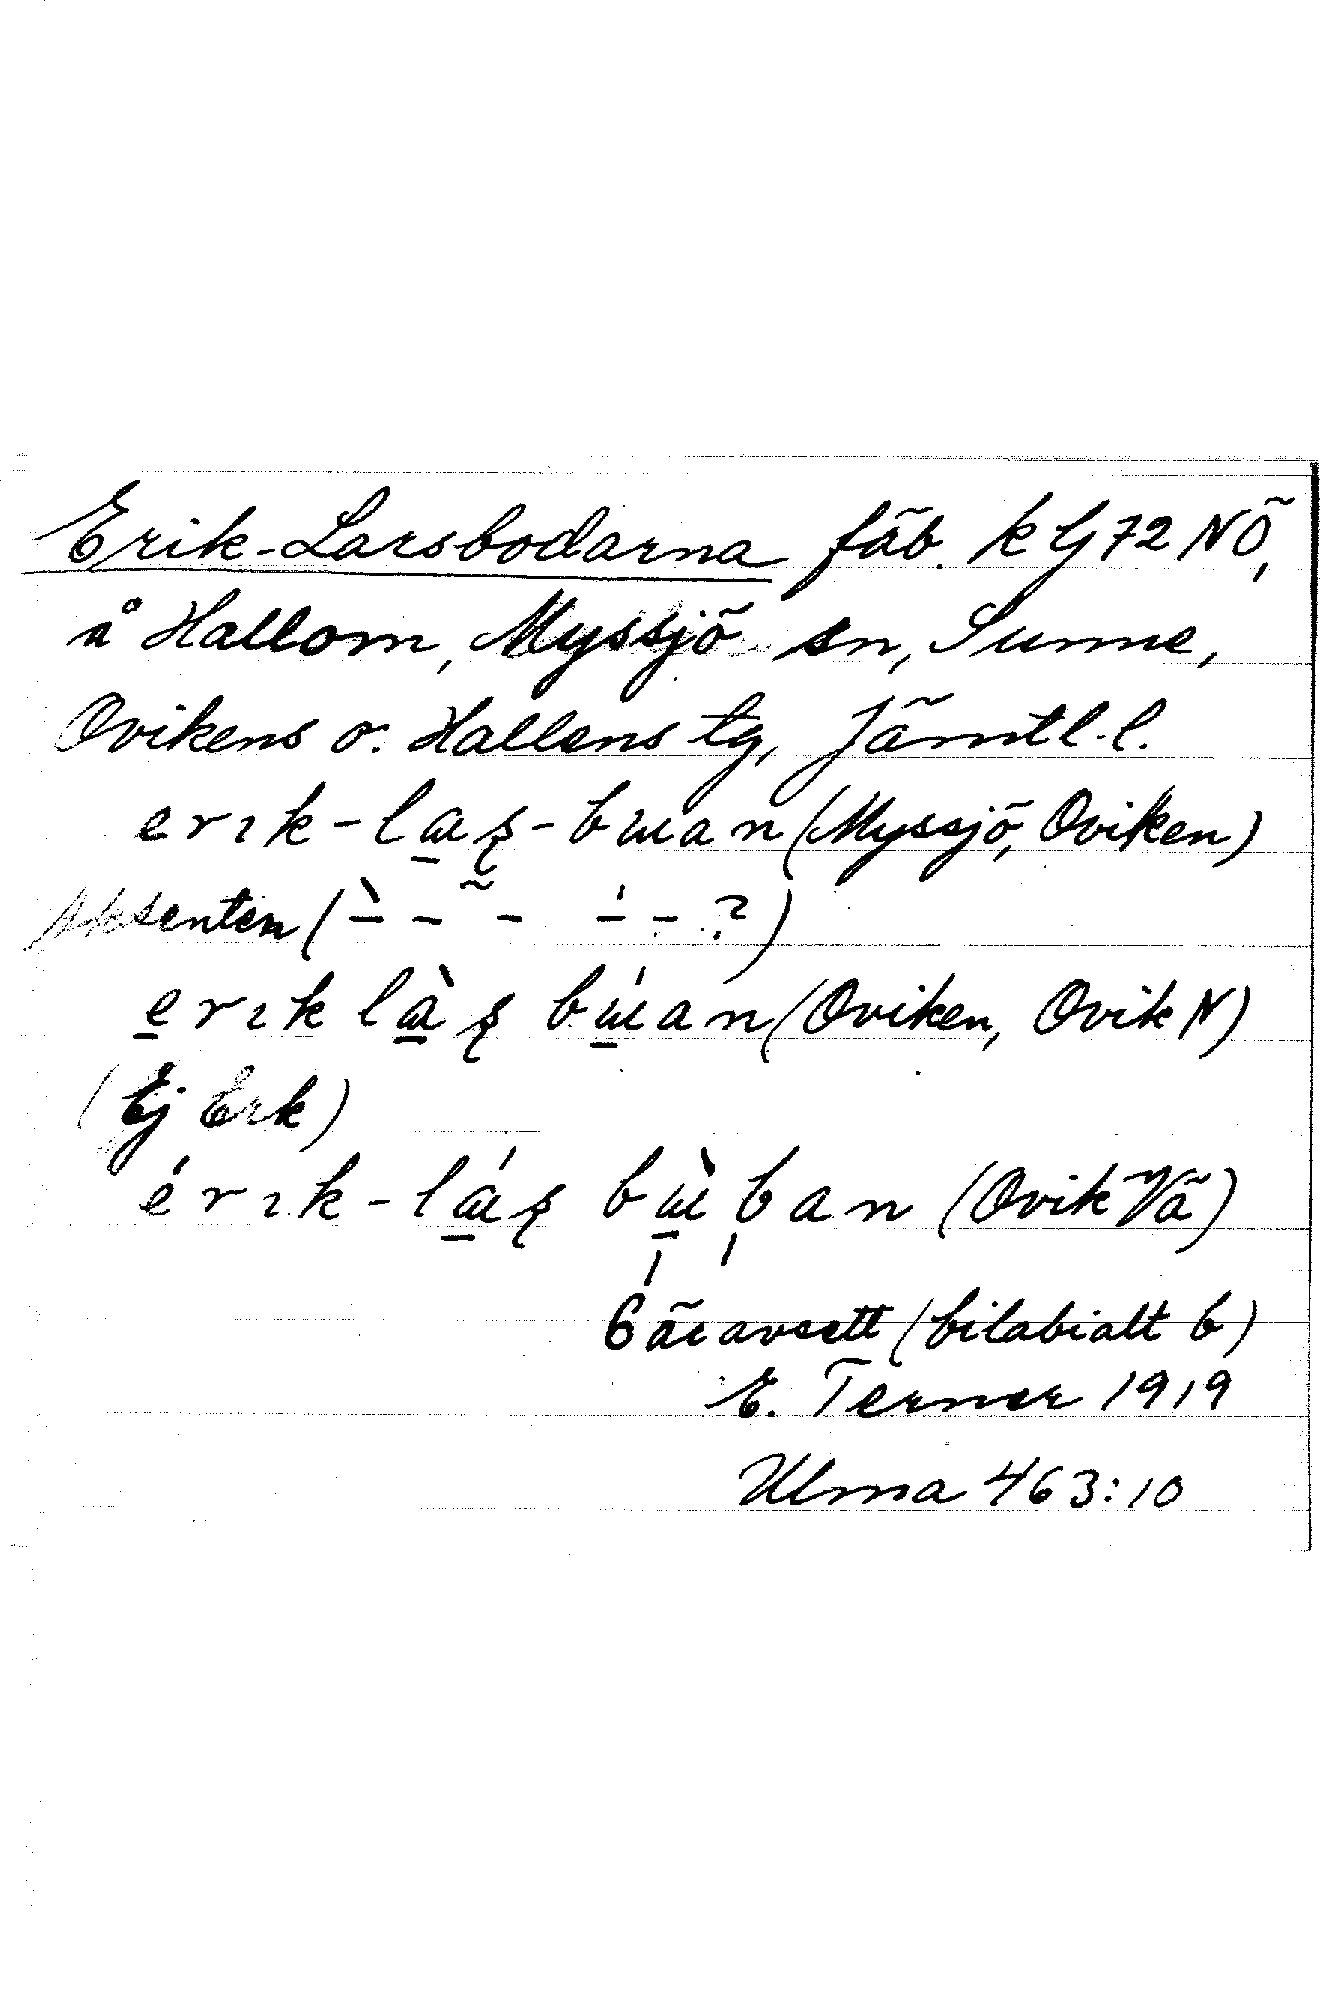 Erik-Larsbodarna fäb. kG72NÖ,
å Hallom, Myssjö sn, Sunne,
Ovikens o. Hallens tg, Jämtl. l.
erık-lɑʂ-bɯan (Myssjö, Oviken)
Aksenten (̀– – ~ – –́ – ?)
e̲rık lɑ̲̀ʂ bɯ̲́an (Oviken, Ovik N)
(Ej Erk)
érık-lɑ̲́ʂ bɯ̲̀ban (Ovik Vä)
6 äe avsett (bilabialt b)
E. Terner 1919
Ulma 463:10